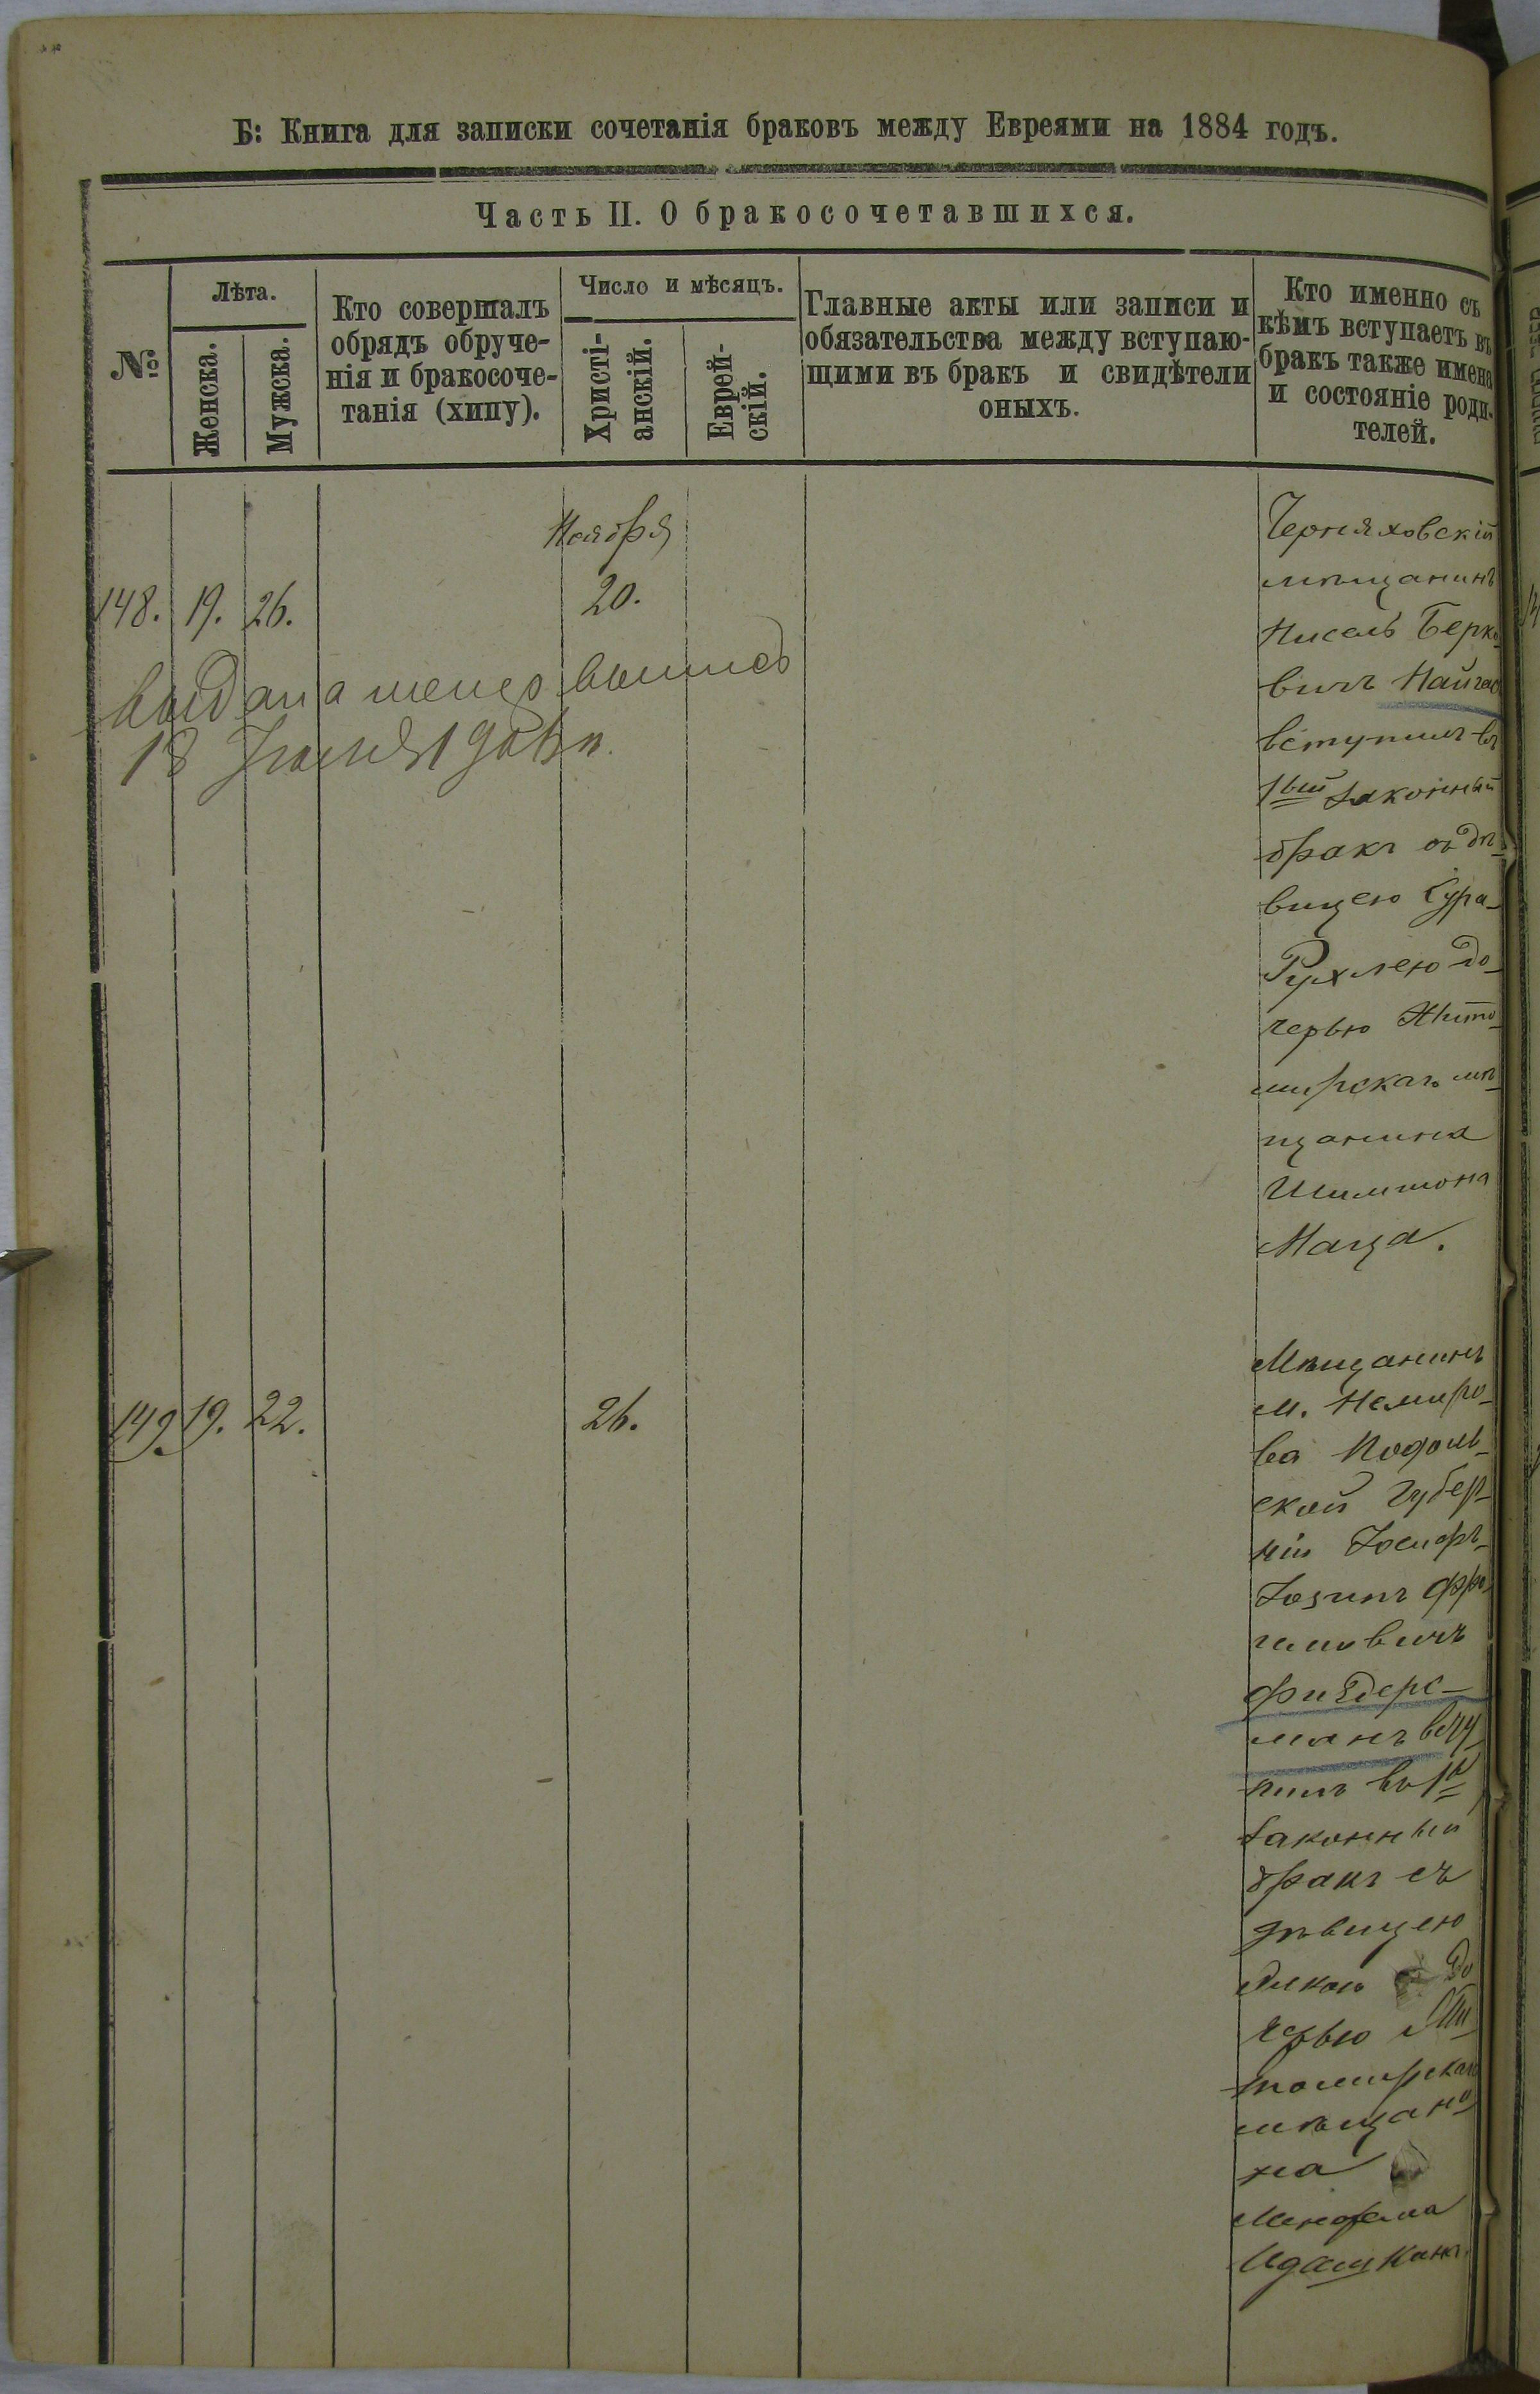 Б: Книга для записки сочетанія браковъ между Евреями на 1884 годъ.
Часть II. О бракосочетавшихся.
№
Лѣта.
Женска.
Мужска.
Кто совершалъ
обрядъ обруче-
нія и бракосоче-
танія (хипу).
Число и мѣсяцъ.
Христі-
анскій.
Еврей-
скій.
Главные акты или записи и
обязательства между вступаю-
щими въ бракъ и свидѣтели
оныхъ.
Кто именно съ
кѣмъ вступаетъ въ
бракъ также имена
и состояніе роди-
телей.
Ноября
148. 19. 26. 20.
выдана
18
Черняховскій
мѣщанинъ
Нисель Берко
вичъ
вступилъ въ
1вый законный
бракъ съ дѣ-
вицею Сура-
Рухлею до-
черью Жито-
мирскаго мѣ-
щанина
Шимшона
Маца.
149. 19. 22. 26.
Мѣщанинъ
м. Немиро-
ва Подоль-
ской губер-
ніи Іосифъ-
Іозипъ
мановъ всту
пилъ въ 1й
законный
бракъ съ
дѣвицею
до
черью Жи
томирскаго
мѣщани
на